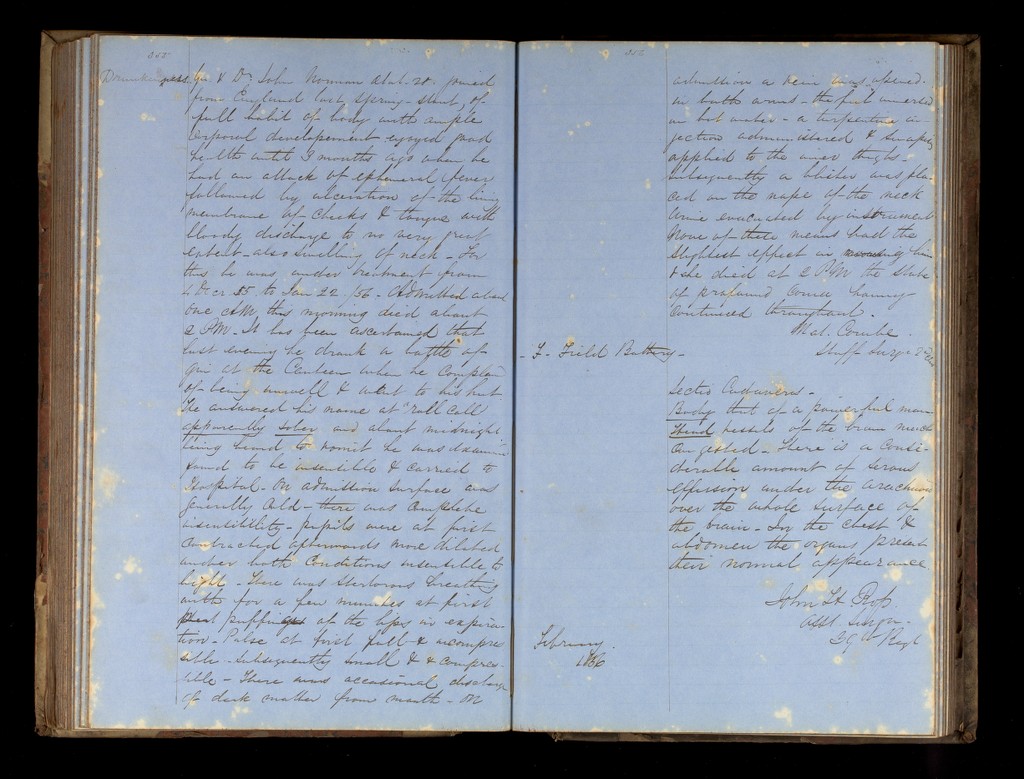 Drunkenness
Gr & Dr John Norman ætat. 28 joined
from England last Spring - stout, of
full habit of body with ample
corporal developement - enjoyed good
health until 3 months ago when he
had an attack of ephemeral fever
followed by ulceration of the lining
membrane of cheeks & tongue with
bloody discharge to no very great
extent - also swelling of neck - For
this he was under treatment from
4 Decr 55 to Jan 22 /56 - Admitted about
One AM this morning died about
2 PM - It has been ascertained that
last evening he drank a bottle of
gin at the Canteen when he complained
of being unwell & went to his hut
He answered his name at roll call
apparently sober and about midnight
being heard to vomit he was
found to be insensible & carried to
Hospital - On admission surface was
generally cold - there was complete
insensibility - pupils were at first
contracted afterwards more dilated
under both conditions insensible to
light - There was stertorous breathing
with for a few minutes at first
puffing of the lips in expira
tion - Pulse at first full & incompres
sible - subsequently small & compres
sible - There was occasional discharge
of dark matter from mouth - On
admission a vein was opened
in both arms - the feet inserted
in hot water - a turpentine in
jection administered & sinapisms
applied to the inner thighs -
subsequently a blister was pla
ced on the nape of the neck
Urine evacuated by instrument
None of these means had the
slightest effect in rousing him
& he died at 2 PM the state
of profound coma having
continued throughout.
Mat. Combe
Staff Surgn 2nd Cl
- F - Field Battery -
Sectio Cadaveris -
Body that of a powerful man
Head vessels of the brain much
congested - There is a consi-
derable amount of serous
effusion under the arachnoid
over the whole surface of
the brain - In the chest &
abdomen the organs present
their normal appearance
John Ross
Asst Surgn
39th Regt
February
1856